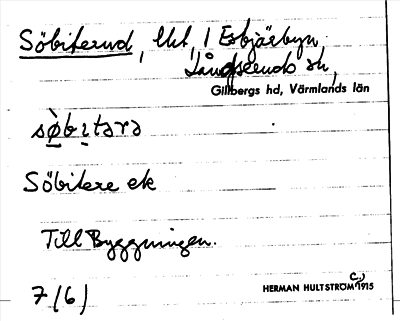 Söbiterud, Ut, i Esbjörbyn
Långseruds sn,
Gillbergs hd, Värmlands län
sø̀bıtərə
Söbitere ek
Till Byggningen.
7/6)
HERMAN HULTSTRÖM (c.) 1915